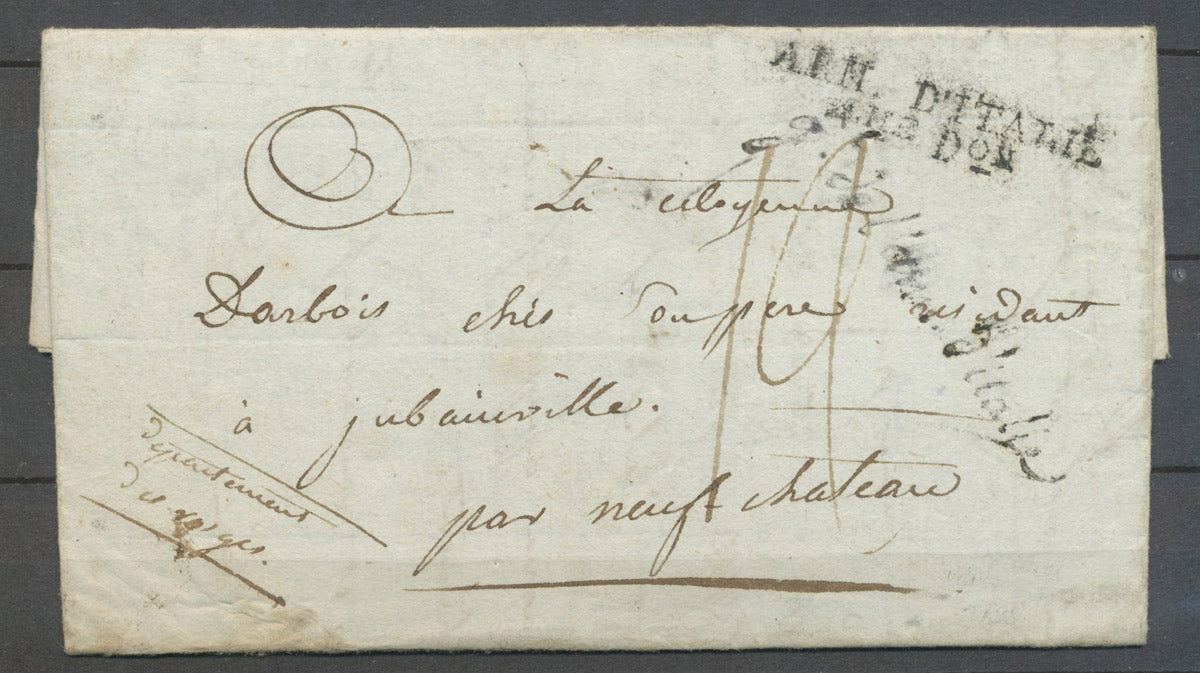 ARM. D'ITALIE
Don
de l'arm. d'italie
A La citoyenne
Darbois chés son pere residant
à jubainville.
par neufchateau
departement
des vosges.